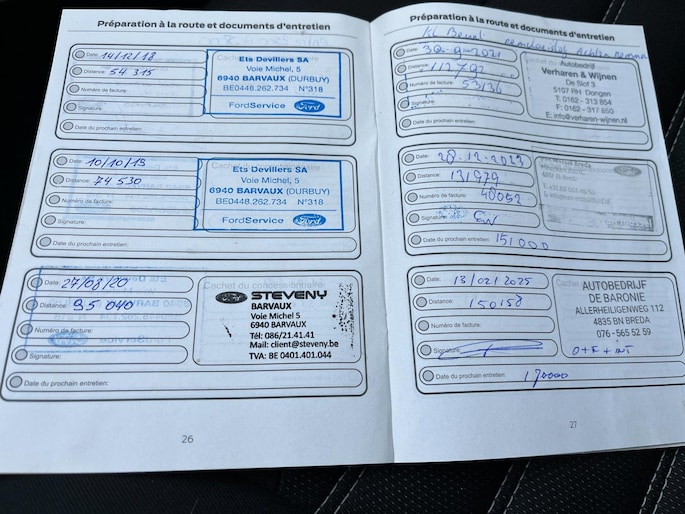 Préparation à la route et documents d'entretien
Date: 14/12/18
Distance: 54 315
Numéro de facture:
Signature:
Date du prochain entretien:
Ets Devillers SA
Voie Michel, 5
6940 BARVAUX (DURBUY)
BE0448.262.734 N°318
FordService Ford
Date: 10/10/19
Distance: 74 530
Numéro de facture:
Signature:
Date du prochain entretien:
Ets Devillers SA
Voie Michel, 5
6940 BARVAUX (DURBUY)
BE0448.262.734 N°318
FordService Ford
Date: 27/08/20
Distance: 95 040
Numéro de facture:
Signature:
Date du prochain entretien:
Cachet du concessionnaire
Ford STEVENY
BARVAUX
Voie Michel, 5
6940 BARVAUX
Tél: 086/21.41.41
Mail: client@steveny.be
TVA: BE 0401.401.044
26
Préparation à la route et documents d'entretien
Date: 30-9-2021
Distance:
Numéro de facture: 53136
Signature:
Date du prochain entretien:
Autobedrijf
Verharen & Wijnen
De Slot 3
5107 RH Dongen
T: 0162 - 313 854
F: 0162 - 317 650
E: info@verharen-wijnen.nl
Date: 28-12-2023
Distance: 131979
Numéro de facture: 48052
Signature:
Date du prochain entretien: 151000
Breda
Date: 13/02/2025
Distance: 150158
Numéro de facture:
Signature:
Date du prochain entretien: 170000
AUTOBEDRIJF
DE BARONIE
ALLERHEILIGENWEG 112
4835 BN BREDA
076-565 52 59
O+F+INT
27